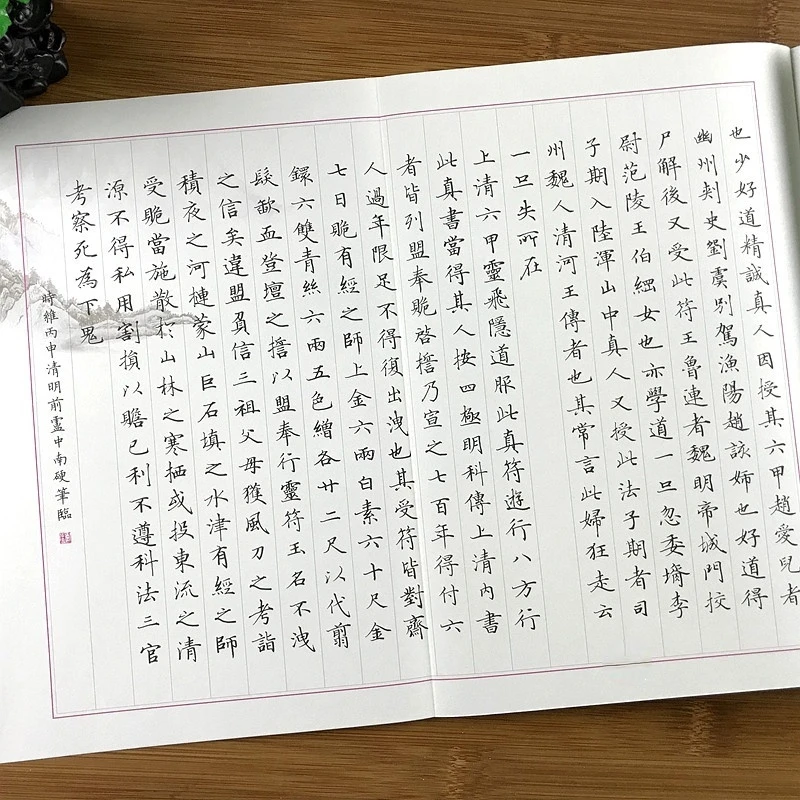 也少好道精誠真人因授其六甲趙愛兒者
幽州刾史劉虞別駕漁陽趙該姉也好道得
尸解後又受此符王魯連者魏明帝城門挍
尉范陵王伯綱女也亦學道一旦忽委壻李
子期入陸渾山中真人又授此法子期者司
州魏人清河王傳者也其常言此婦狂走云
一旦失所在
上清六甲靈飛隱道服此真符遊行八方行
此真書當得其人按四極明科傳上清內書
者皆列盟奉贍啓擔乃宣之七百年得付六
人過年限足不得復出洩也其受符皆對齋
七日贍有經之師上金六兩白素六十尺金
鐶六雙青絲六兩五色繒各廿二尺以代翦
髮歃血登壇之擔以盟奉行靈符玉名不洩
之信矣違盟負信三祖父母獲風刀之考詣
積夜之河摙蒙山巨石填之水津有經之師
受贍當施散於山林之寒栖或投東流之清
源不得私用割損以贍已利不遵科法三官
考察死為下鬼
時維丙申清明前盧中南硬筆臨